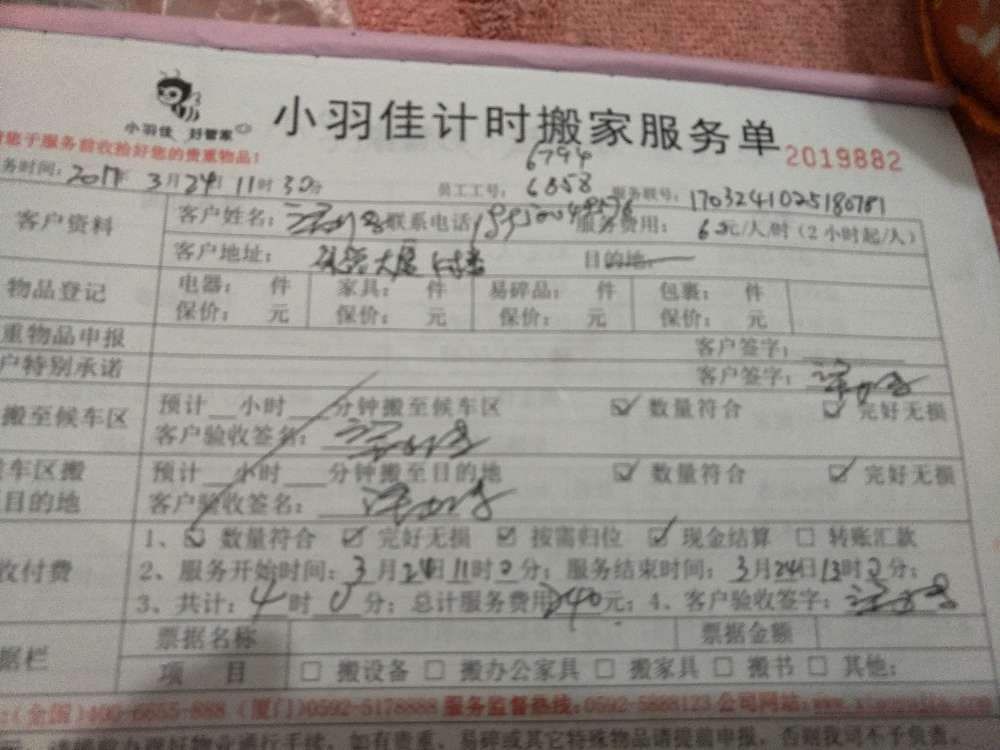 小羽佳 好管家
小羽佳计时搬家服务单
2019882
于服务前收拾好您的贵重物品！
6794
务时间： 2017年 3月24日 11时30分 员工工号： 6858 服务联号： 1703241025180781
客户资料 客户姓名： 联系电话 服务费用： 60元/人/时（2小时起/人）
客户地址： 大厦 目的地：
物品登记 电器： 件 家具： 件 易碎品： 件 包裹： 件
保价： 元 保价： 元 保价： 元 保价： 元
重物品申报 客户签字：
户特别承诺 客户签字：
搬至候车区 预计__小时__分钟搬至候车区 数量符合 完好无损
客户验收签名：
车区搬 预计__小时__分钟搬至目的地 数量符合 完好无损
目的地 客户验收签名：
1、 数量符合 完好无损 按需归位 现金结算 转账汇款
收付费 2、服务开始时间：3月24日11时0分；服务结束时间：3月24日13时0分；
3、共计：4时0分；总计服务费用240元；4、客户验收签字：
据栏 票据名称 票据金额
项 目 搬设备 搬办公家具 搬家具 搬书 其他：
(全国)400-6655-888 (厦门)0592-5178888 服务监督热线：0592-5888123 公司网站：
行手续，如有贵重、易碎或其它特殊物品请提前申报，否则我司不予负责。